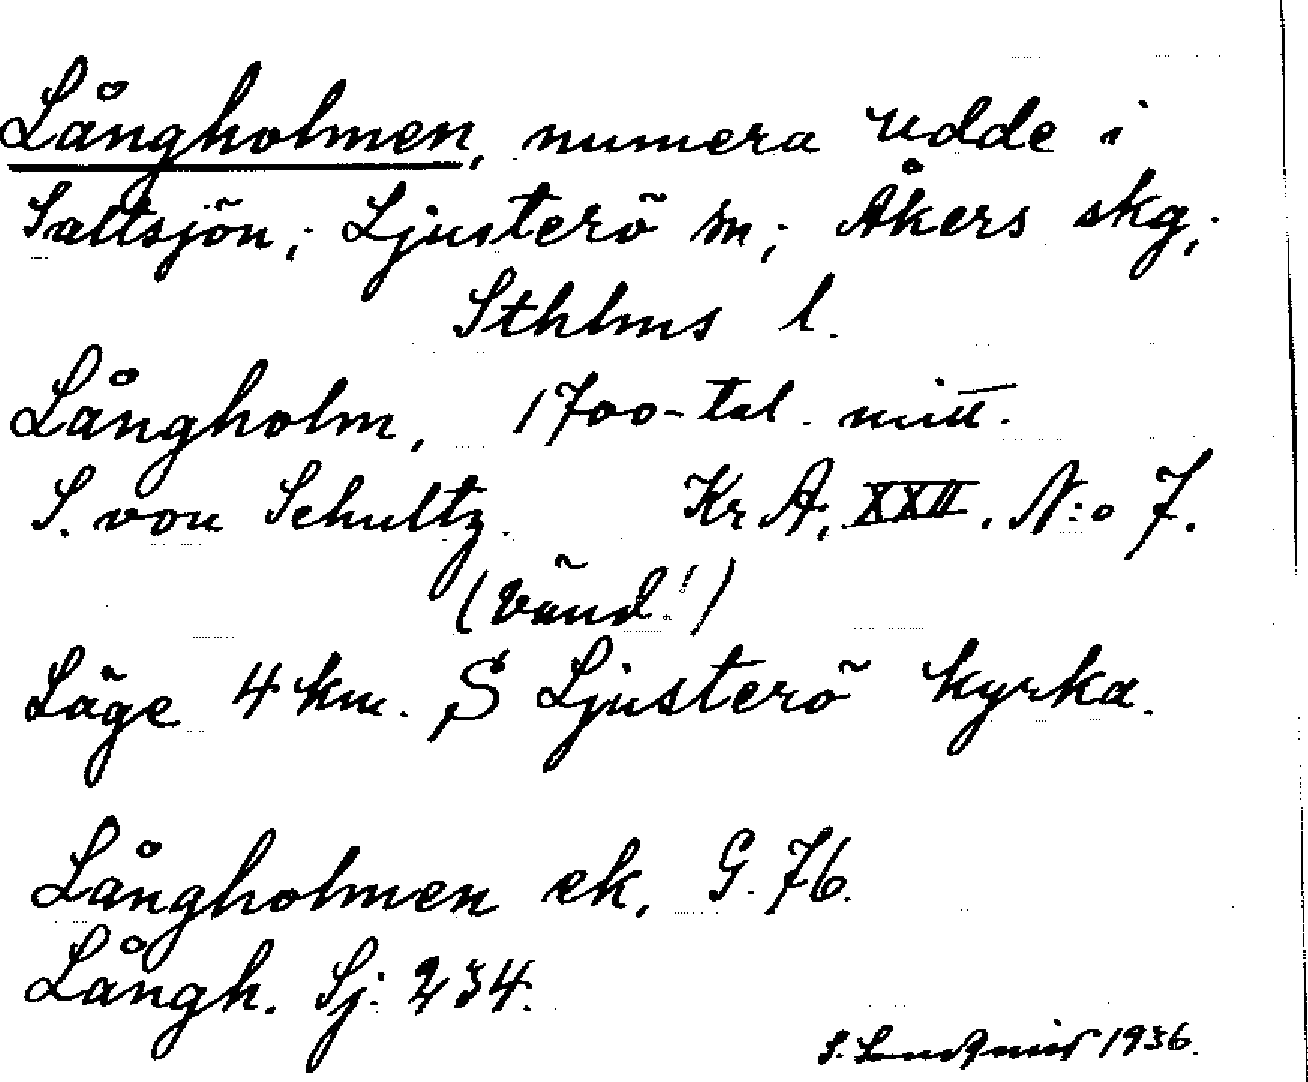 Långholmen, numera udde i
Saltsjön; Ljusterö sn; Åkers skg;
Sthlms l.
Långholm, 1700-tal. mitt.
S. von Schultz. Kr A, XXII. N:o 7.
(Vänd!)
Läge 4 km. S Ljusterö kyrka.
Långholmen ek, G. 76.
Långh. Sj: 234.
S. 1936.